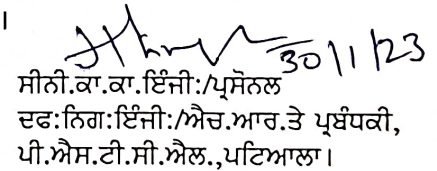 ।
30/1/23
ਸੀਨੀ.ਕਾ.ਕਾ.ਇੰਜੀ:/ਪ੍ਰਸੋਨਲ
ਦਫ:ਨਿਗ:ਇੰਜੀ:/ਐਚ.ਆਰ.ਤੇ ਪ੍ਰਬੰਧਕੀ,
ਪੀ.ਐਸ.ਟੀ.ਸੀ.ਐਲ.,ਪਟਿਆਲਾ।